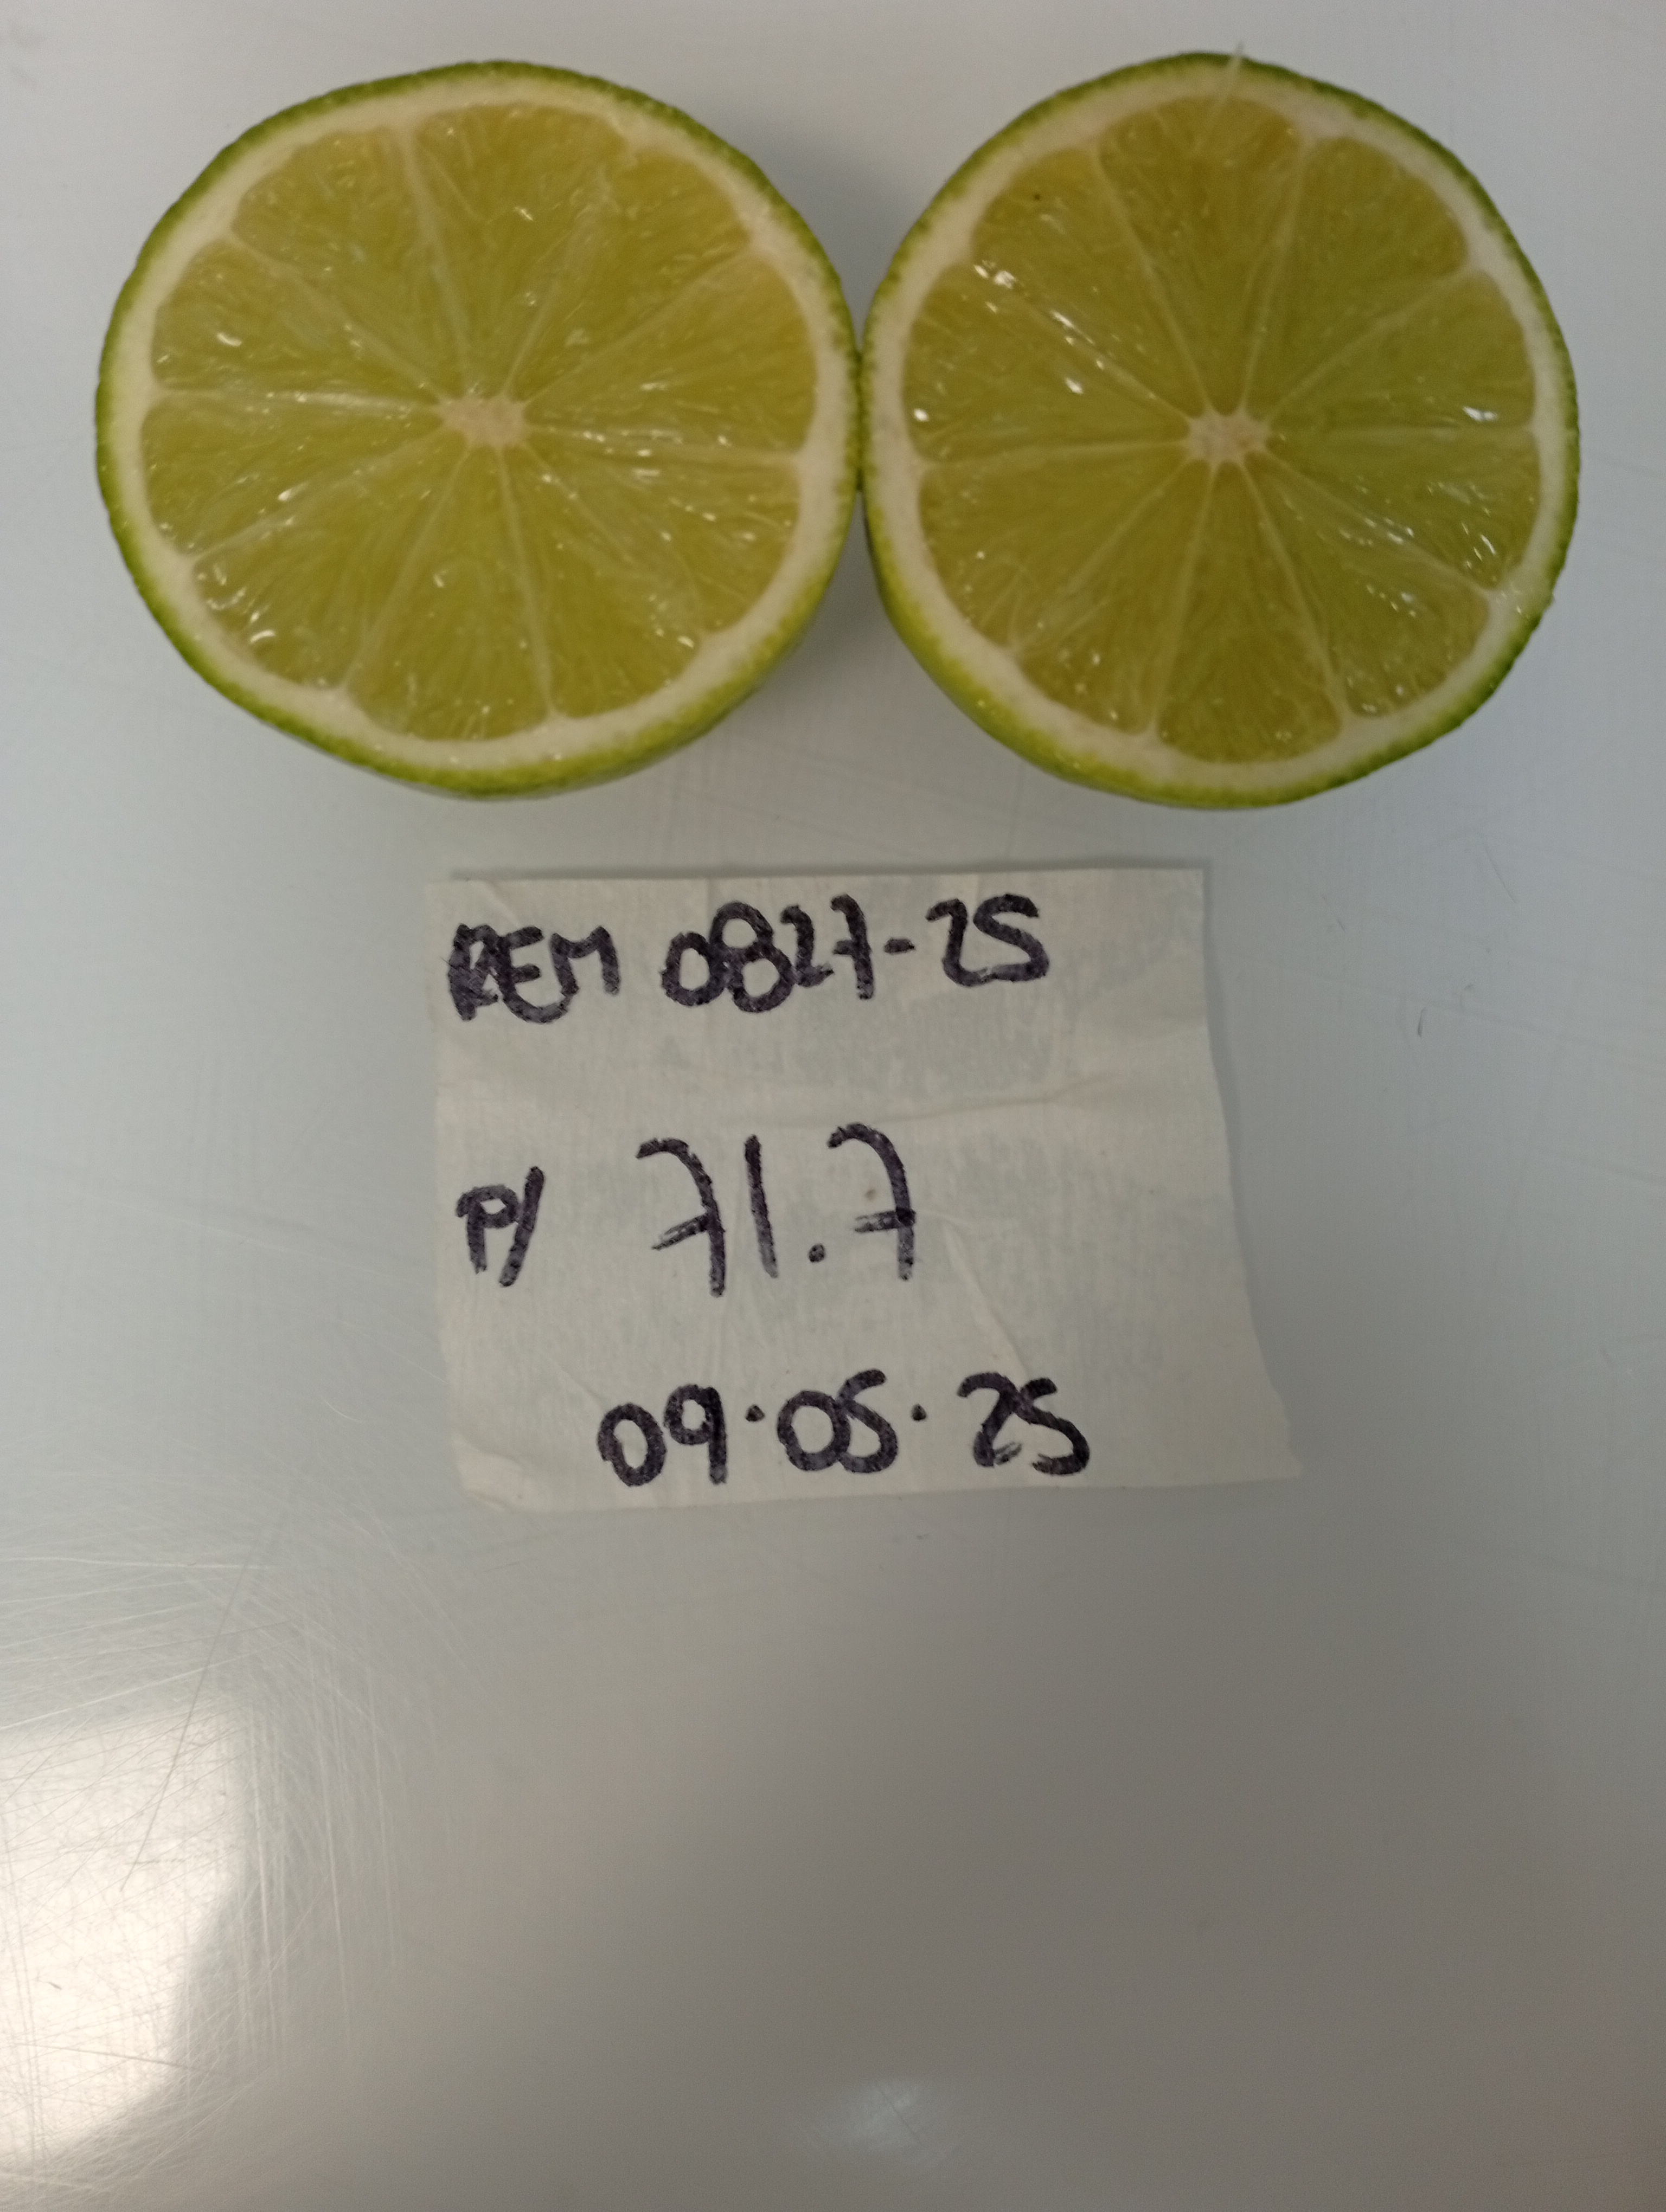 REM 0827-25
P/ 71.7
09.05.25